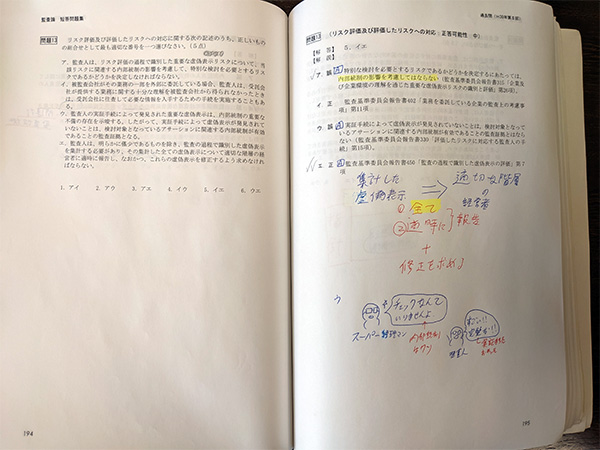 監査論 短答問題集
問題13 リスク評価及び評価したリスクへの対応に関する次の記述のうち、正しいもの
の組合せとして最も適切な番号を一つ選びなさい。(5点)
ア.監査人は、リスク評価の過程で識別した重要な虚偽表示リスクについて、当
該リスクに関連する内部統制の影響を考慮した上で、特別な検討を必要とするリス
クであるかどうかを決定しなければならない。
イ.被監査会社がその業務の一部を外部に委託している場合、監査人は、受託会
社が提供する業務に関する十分な理解を被監査会社から得られなかったときに
は、受託会社に往査して必要な情報を入手するための手続を実施することもあ
る。
ウ.監査人の実証手続によって発見された重要な虚偽表示は、内部統制の重要な
不備の存在を示唆する。したがって、実証手続によって虚偽表示が発見されて
いないことは、検討対象となっているアサーションに関連する内部統制が有効で
あることの監査証拠となる。
エ.監査人は、明らかに僅少であるものを除き、監査の過程で識別した虚偽表示
を集計する必要があり、その集計した全ての虚偽表示について適切な階層の経
営者に適時に報告し、なおかつ、これらの虚偽表示を修正するよう求めなけれ
ばならない。
1.アイ 2.アウ 3.アエ 4.イウ 5.イエ 6.ウエ
194
過去問
問題13 (リスク評価及び評価したリスクへの対応:正答可能性 中)
【解答】 5.イエ
【解説】
ア.誤 特別な検討を必要とするリスクであるかどうかを決定するにあたっては、
内部統制の影響を考慮してはならない(監査基準委員会報告書315「企業及
び企業環境の理解を通じた重要な虚偽表示リスクの識別と評価」第26項)。
イ.正 監査基準委員会報告書402「業務を委託している企業の監査上の考慮事
項」第11項
ウ.誤 実証手続によって虚偽表示が発見されていないことは、検討対象となって
いるアサーションに関連する内部統制が有効であることの監査証拠とはなら
ない(監査基準委員会報告書330「評価したリスクに対応する監査人の手
続」第15項)。
エ.正 監査基準委員会報告書450「監査の過程で識別した虚偽表示の評価」第7
項
集計した
虚偽表示
⇒ 適切な階層
の
経営者
① 全て
② 適時に
報告
+
修正を求める
ウ
チェックなんて
いりませんよ
スーパー経理マン
内部統制
はクソ
すごい!!
完璧だ!!
監査人
195